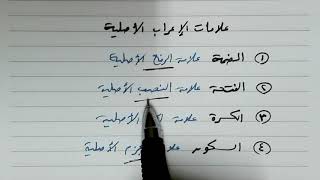 علامات الإعراب الأصلية
① الضمة علامة الرفع الأصلية
② الفتحة علامة النصب الأصلية
③ الكسرة علامة الأصلية
④ السكون الأصلية